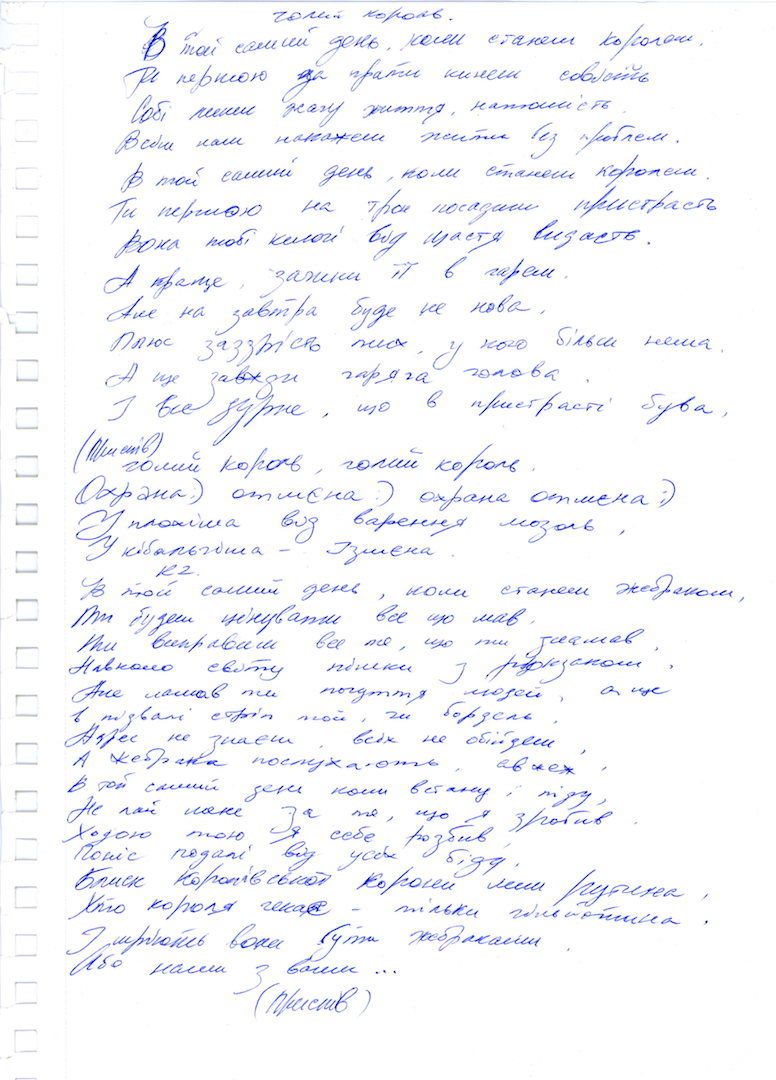 голий король.
В той самий день, коли станеш королем,
Ти першою за грати кинеш совість
Собі лишиш жагу життя, натомість
Всім нам накажеш жити без проблем.
В той самий день, коли станеш королем.
Ти першою на трон посадиш пристрасть
Вона тобі келій від щастя видасть.
А краще, зачини її в гарем.
Але на завтра буде не нова,
Плюс заздрість тих, у кого більш нема.
А ще завжди гаряча голова.
І все дурне, що в пристрасті бува,
(Приспів)
голий король, голий король.
Охрана:) отмєна:) охрана отмєна:)
У плохіша від варення мозоль,
У кібальчіша - Ізмєна.
К2.
В той самий день, коли станеш жебраком,
Ти будеш цінувати все що мав.
Ти виправиш все те, що ти зламав,
Навколо світу пішки з рюкзаком.
Але ламав ти почуття людей, а ще
в підвалі стріп той, чи бордель,
Адрес не знаєш, всіх не обійдеш,
А жебрака послухають, авжеж,
В той самий день коли встану і піду,
Не лай мене за те, що я зробив.
Ходою тою я себе розбив,
Поніс подалі від усіх біду.
Блиск королівської корони лиш рутина,
Хто короля чекає - тільки гільйотина.
І мріють вони бути жебраками
Або нами з вами...
(Приспів)